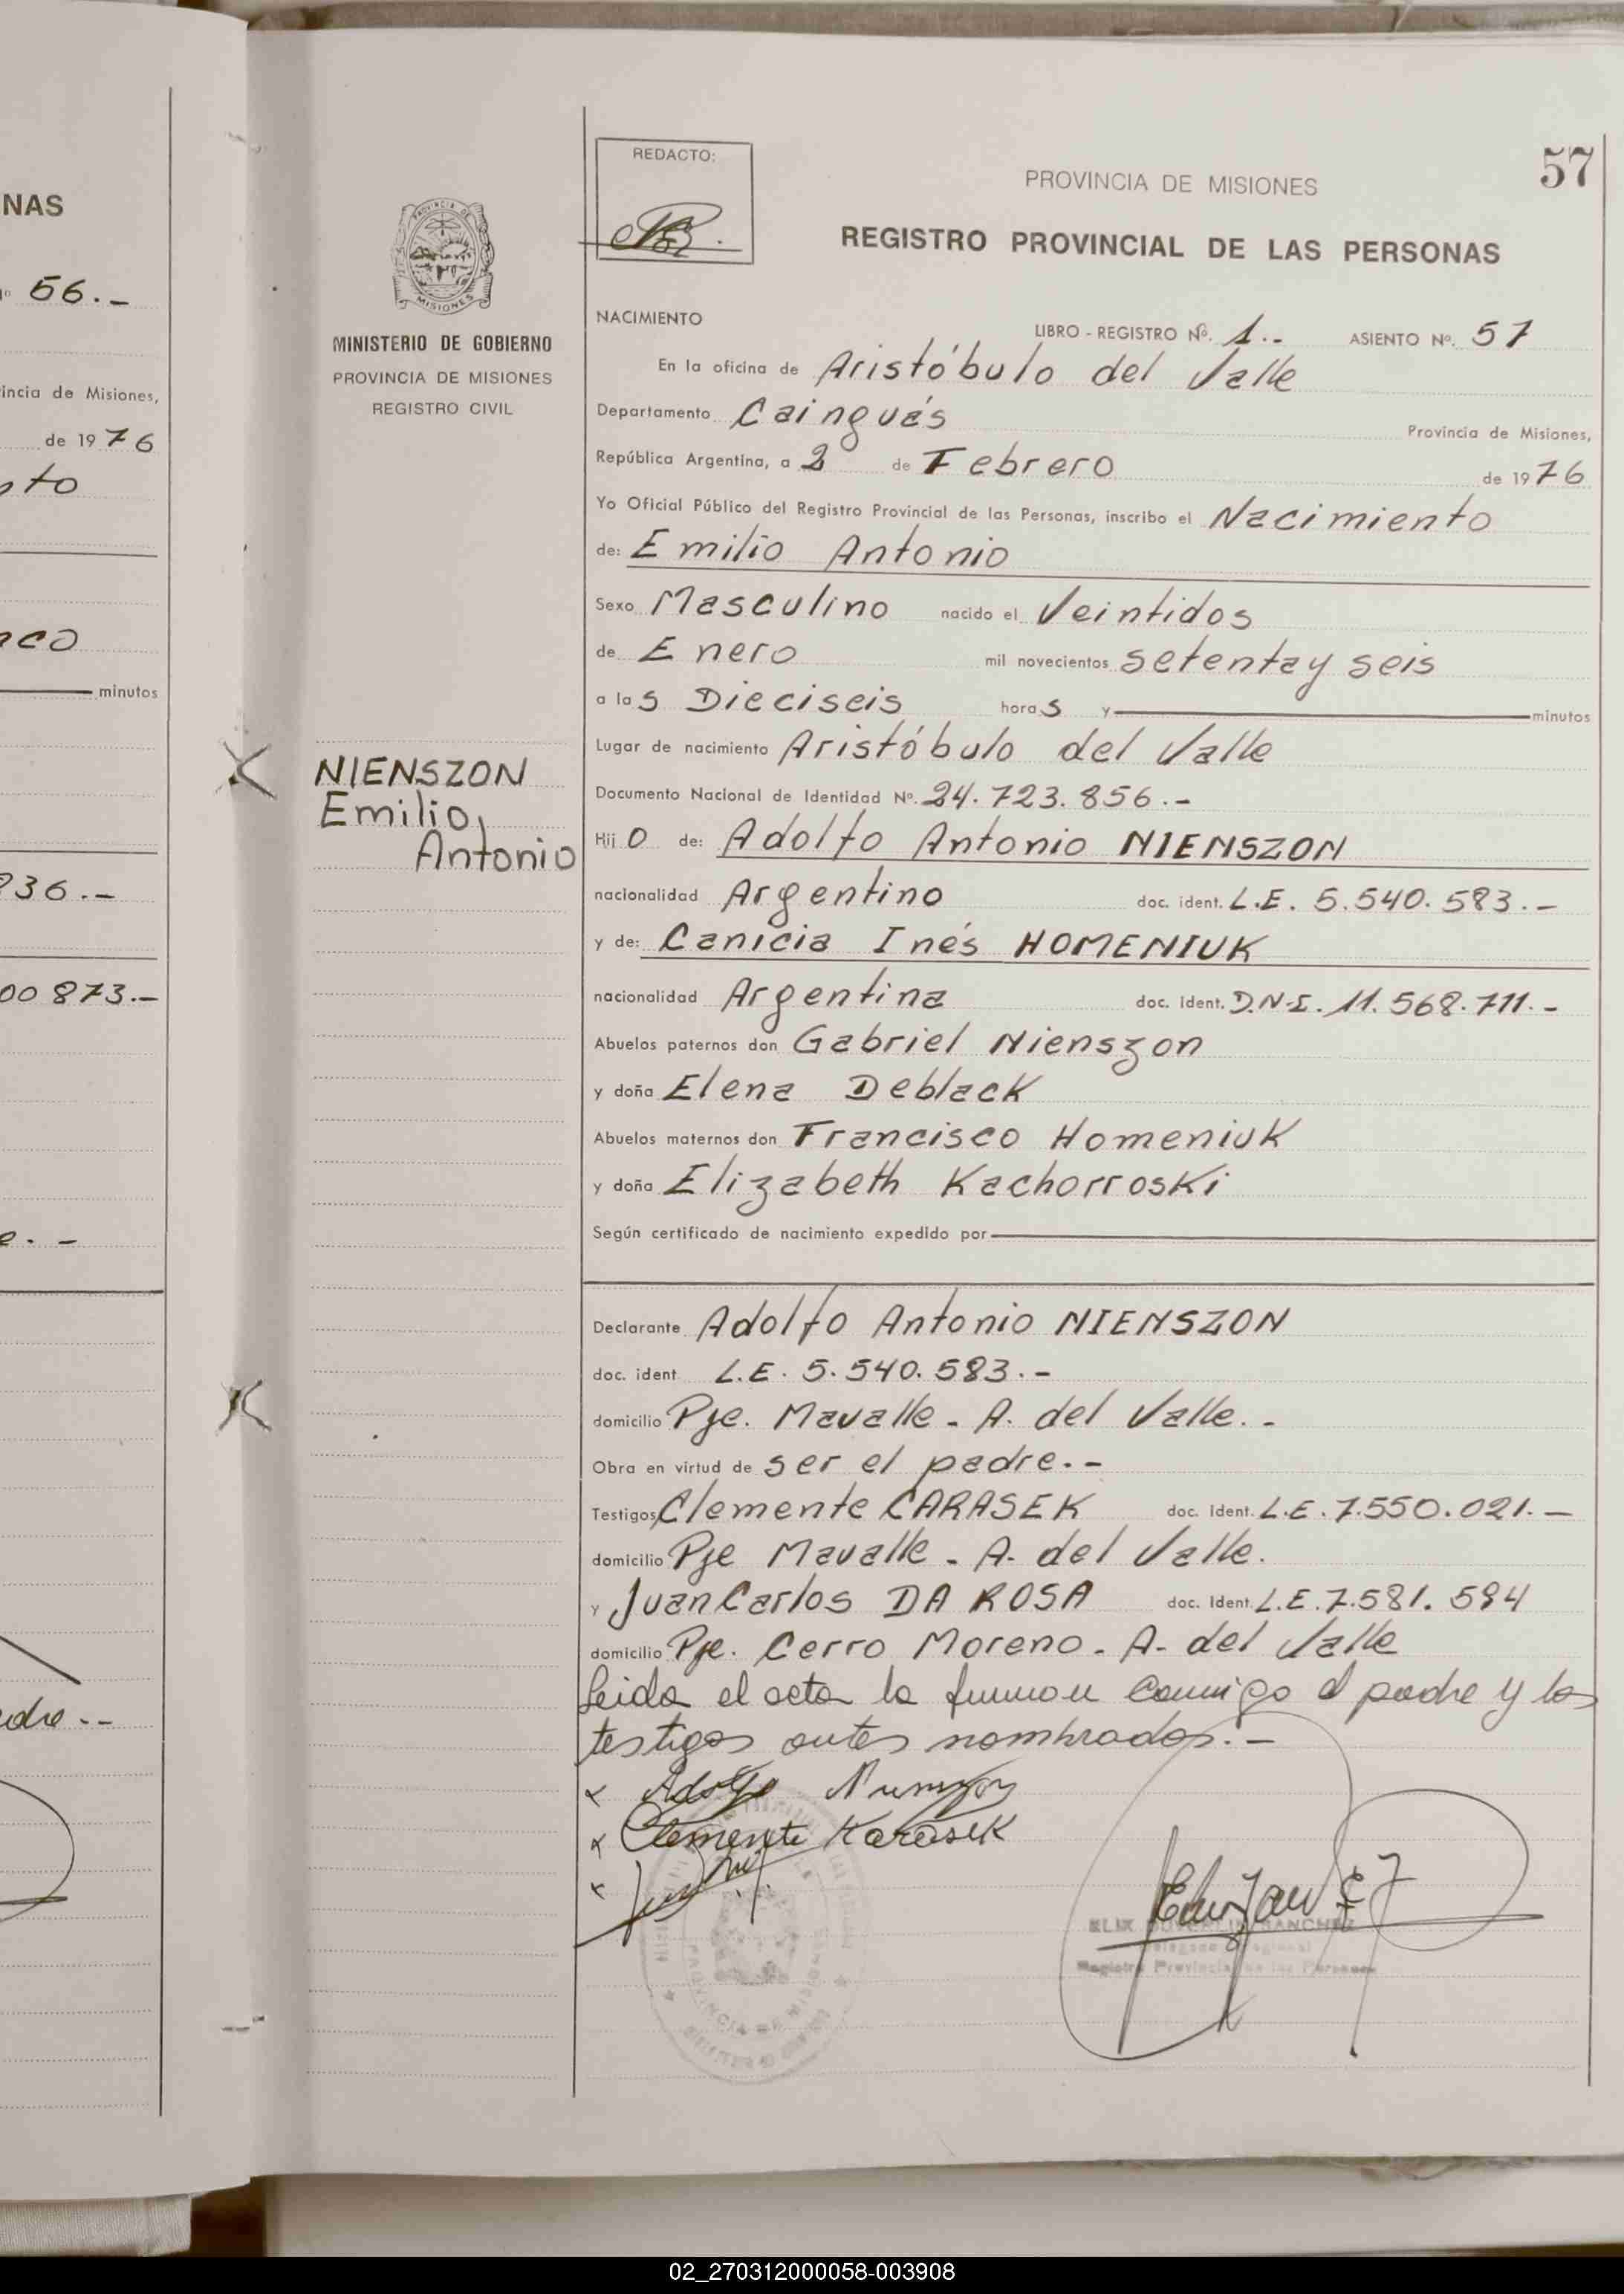 NAS
Nº 56.-
incia de Misiones,
de 1976
nto
nco
minutos
836.-
00873.-
e. -
adre --
MINISTERIO DE GOBIERNO
PROVINCIA DE MISIONES
REGISTRO CIVIL
NIENSZON
Emilio,
Antonio
REDACTO:
57
PROVINCIA DE MISIONES
REGISTRO PROVINCIAL DE LAS PERSONAS
NACIMIENTO
LIBRO - REGISTRO Nº. 1.- ASIENTO Nº. 57
En la oficina de Aristóbulo del Valle
Departamento Cainguás Provincia de Misiones,
República Argentina, a 2º de Febrero de 1976
Yo Oficial Público del Registro Provincial de las Personas, inscribo el Nacimiento
de: Emilio Antonio
Sexo Masculino nacido el Veintidos
de Enero mil novecientos setenta y seis
a las Dieciseis horas y minutos
Lugar de nacimiento Aristóbulo del Valle
Documento Nacional de Identidad Nº. 24.723.856.-
Hijo de: Adolfo Antonio NIENSZON
nacionalidad Argentino doc. ident. L.E. 5.540.583.-
y de: Canicia Inés HOMENIUK
nacionalidad Argentina doc. ident. D.N.I. 11.568.711.-
Abuelos paternos don Gabriel Nienszon
y doña Elena Deblack
Abuelos maternos don Francisco Homeniuk
y doña Elizabeth Kachorroski
Según certificado de nacimiento expedido por
Declarante Adolfo Antonio NIENSZON
doc. ident L.E. 5.540.583.-
domicilio Pje. Mavalle - A. del Valle.-
Obra en virtud de ser el padre.-
Testigos Clemente CARASEK doc. ident. L.E. 7.550.021.-
domicilio Pje Mavalle - A. del Valle.
y Juan Carlos DA ROSA doc. ident. L.E. 7.581.594
domicilio Pje. Cerro Moreno - A. del Valle
Leida el acta la firman conmigo el padre y los
testigos antes nombrados.-
x Adolfo
x Clemente Karasek
x
SANCHEZ
Registro Provincial de las Personas
02_270312000058-003908